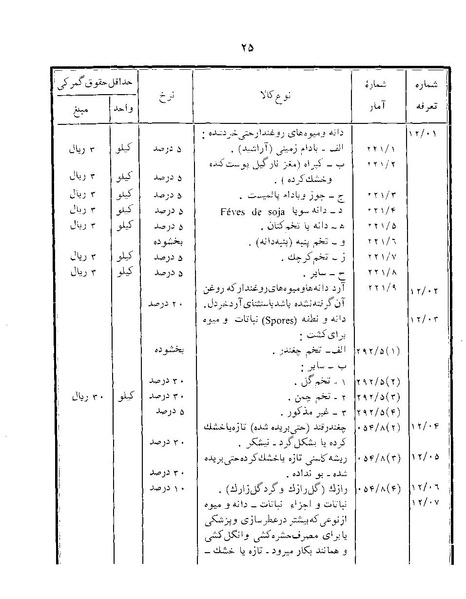 ۲۵
شماره تعرفه | شمارهٔ آمار | نوع کالا | نرخ | حداقل حقوق گمرکی: واحد | مبلغ
۱۲/۰۱ | | دانه و میوه‌های روغندار حتی خرد شده :
۲۲۱/۱ | الف - بادام زمینی (آراشید) . | ۵ درصد | کیلو | ۳ ریال
۲۲۱/۲ | ب - کپراه (مغز نارگیل پوست کنده
وخشک کرده) . | ۵ درصد | کیلو | ۳ ریال
۲۲۱/۳ | ج - جوز وبادام پالمیست . | ۵ درصد | کیلو | ۳ ریال
۲۲۱/۴ | د - دانه سویا Féves de soja | ۵ درصد | کیلو | ۳ ریال
۲۲۱/۵ | ه - دانه یا تخم کتان . | ۵ درصد | کیلو | ۳ ریال
۲۲۱/۶ | و - تخم پنبه (پنبه‌دانه) . | بخشوده
۲۲۱/۷ | ز - تخم کرچک . | ۵ درصد | کیلو | ۳ ریال
۲۲۱/۸ | ح - سایر . | ۵ درصد | کیلو | ۳ ریال
۱۲/۰۲ | ۲۲۱/۹ | آرد دانه‌ها ومیوه‌های روغندار که روغن
آن گرفته نشده باشد باستثنای آرد خردل . | ۲۰ درصد
۱۲/۰۳ | | دانه و نطفه (Spores) نباتات و میوه
برای کشت :
۲۹۲/۵(۱) | الف - تخم چغندر . | بخشوده
ب - سایر :
۲۹۲/۵(۲) | ۱ - تخم گل . | ۳۰ درصد
۲۹۲/۵(۳) | ۲ - تخم چمن . | ۳۰ درصد | کیلو | ۳۰ ریال
۲۹۲/۵(۴) | ۳ - غیر مذکور . | ۵ درصد
۱۲/۰۴ | ۰۵۴/۸(۲) | چغندرقند (حتی بریده شده) تازه یا خشک
کرده یا بشکل گرد - نیشکر . | ۳۰ درصد
۱۲/۰۵ | ۰۵۴/۸(۳) | ریشه کاسنی تازه یا خشک کرده حتی بریده
شده - بو نداده . | ۳۰ درصد
۱۲/۰۶ | ۰۵۴/۸(۴) | رازک (گل رازک و گرد گل زارک) . | ۱۰ درصد
۱۲/۰۷ | | نباتات و اجزاء نباتات - دانه و میوه
از نوعی که بیشتر در عطرسازی و پزشکی
یا برای مصرف حشره کشی و انگل کشی
و همانند بکار میرود - تازه یا خشک -